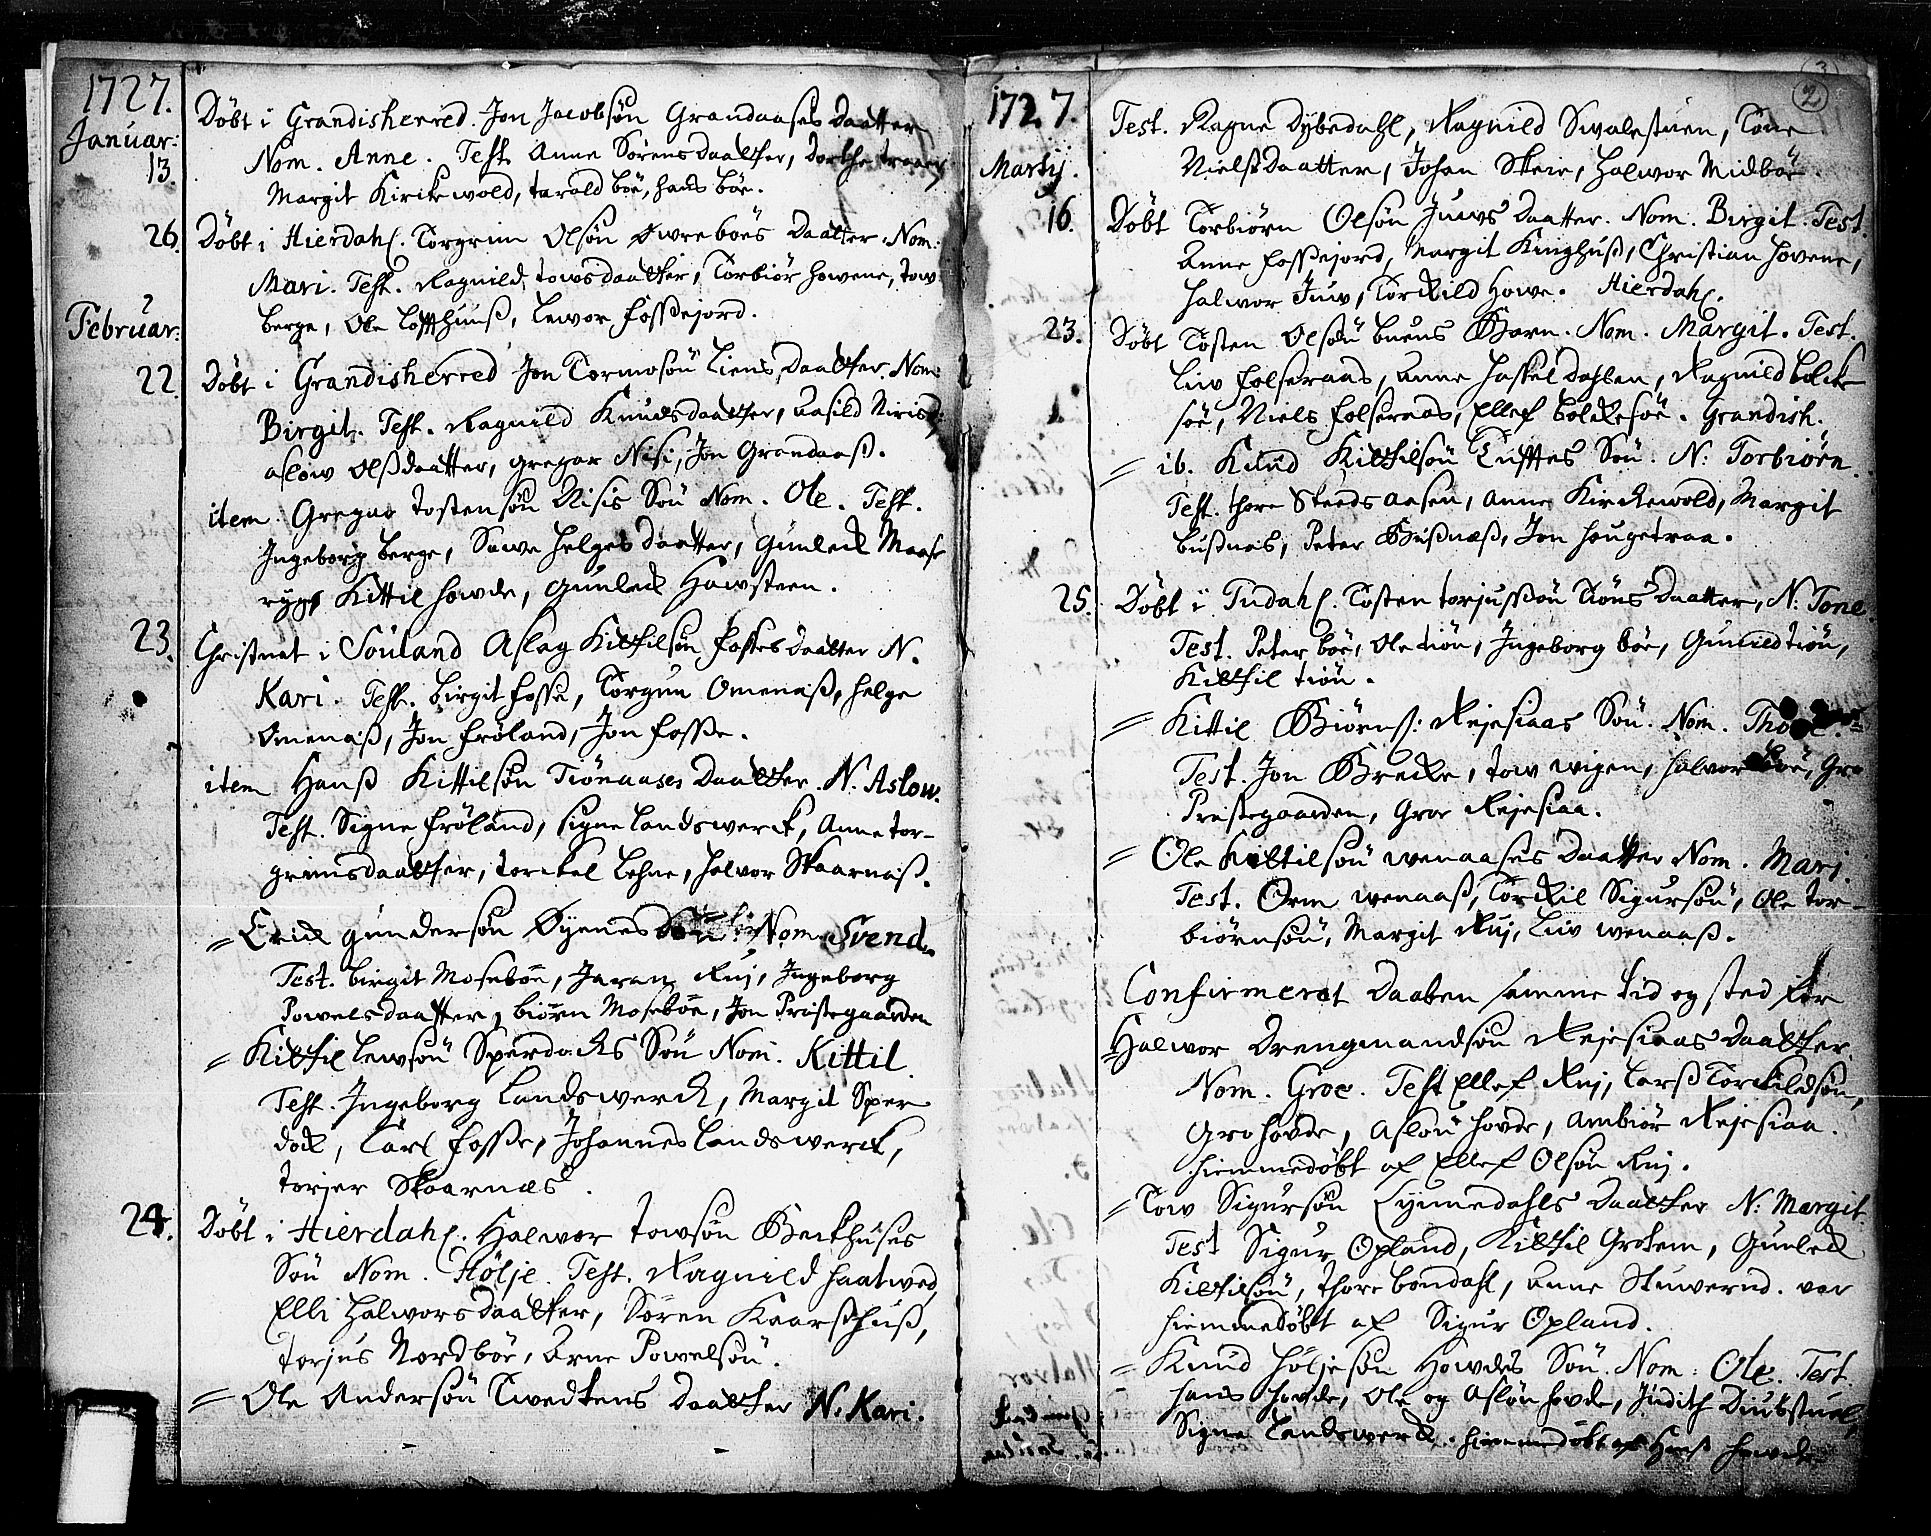 1727.
Januar:
13. Döbt i Grandisherred. Jon Jacobsön Grandaases Daatter
Nom. Anne. Test. Anne Sörensdaatter, Dorthe traaen,
Margit Kirckewold, tarald böe, hans böe.
26. Döbt i Hierdahl. Torgrim Olsön Öwreböes Daatter. Nom:
Mari. Test. Ragnild towsdaatter, Torbiör howene, tow
berge, Ole Loffthuuß, Lewor foßejord.
Februar:
22 Döbt i Grandisherred Jon Tormosön Liens Daatter. Nom:
Birgit. Test. Ragnild Knudsdaatter, Aasild Nirisd,
aslow olßdaatter, gregar Nisi, Jon Grandaaß.
item. Gregar tostensön Nisis Sön Nom. Ole. Test.
Ingeborg berge, Sawe helges daatter, Gunleck Maase
ryg, Kittil howde, Gunleck Hawsteen.
23. Christnet i Souland Aslag Kittilsön foßes daatter N.
Kari. Test. birgit foße, Torgun Omenaiß, helge
Omenaiß, Jon fröland, Jon foße.
item Hanß Kittilsön Tiönaases Daatter. N. Aslow.
Test. Signe fröland, signe Landswerck, Anne tor-
grimsdaatter, torckel Lehne, halvor Skaarnaß.
= Erick gundersön Öynes Sön. Nom. Svend.
Test. birgit Moseböe, Jaran Ruj, Ingeborg
Powelsdaatter, biörn Moseböe, Jon Præstegaarden
= Kittil Lewsön Sperdocks Sön Nom. Kittil.
Test. Ingeborg Landswerck, Margit Sper
dock, Carl foße, Johannes Landswerck,
torjer Skaarnæs.
24. Döbt i Hierdahl. Halwor towsön Berkhuses
Sön Nom. Hölje. Test. Ragnild haatwed,
Elli halworsdaatter, Sören Kaarshhuß,
torjus Nordböe, Arne Powelsön.
= Ole Andersön Twedtens Daatter N. Kari.
2
1727.
Test. Ragne Dybedahl, Ragnild Swalestuen, Tone
Nielsdaatter, Johan Skeie, halwor Midböe.
Martij.
16. Döbt Torbiörn Olsön Juws Daatter. Nom. Birgit. Test.
Anne foßejord, Margit Kinghuß, Christian hovene,
halwor Juw, Torckild Howe. Hierdahl.
23. Döbt Tosten Olsön buens Barn. Nom. Margit. Test.
Liw folseraas, Anne haßeldahlen, Ragnild bolcke
söe, Niels folseraas, Ellef bolckesöe. Grandish.
= ib. Knud Kittilsön Tufftes Sön. N: Torbiörn.
Test. thore Steedsaasen, Anne Kirckewold, Margit
bußnæs, Peter Bußnæß, Jon haugetraa.
25. Döbt i Tudahl. Tosten torjussön Tiöns Daatter, N. Tone.
Test. Peter böe, Ole tiön, Ingeborg böe, Gunild tiön,
Kittil tiön.
= Kittil Biörns: Rejesiaas Sön. Nom.
Test. Jon Brecke, tow wigen, halvor böe, Gro
Præstegaarden, Groe Rejesiaa.
= Ole Kittilsön wenaases Daatter Nom. Mari.
Test. Orm wenaaß, Torckil Sigursön, Ole Tor-
biörnsön, Margit Ruj, Liv wenaaß.
Confirmeret Daaben samme tid og sted for
= Halwor Drengmandsön Rejesiaas Daatter.
Nom. Groe. Test Ellef Ruj, Larß Torckildsön,
Gro hovde, Aslou hovde, Ambiör Rejesiaa.
hiemmedöbt af Ellef Olsön Ruj.
= Tow Sigursön Lynnedahls Daatter N: Margit.
Test Sigur Opland, Kittil Grotem, Gunleck
Kittilsön, thore bondahl, Anne Stuwerud. var
hiemmedöbt af Sigur Opland.
= Knud höljesön Howdes Sön. Nom: Ole. Test.
hans hovde, Ole og Aslön hovde, Judith Diubstuel,
Signe Landswerck. hiemmedöbt af Hans howde.